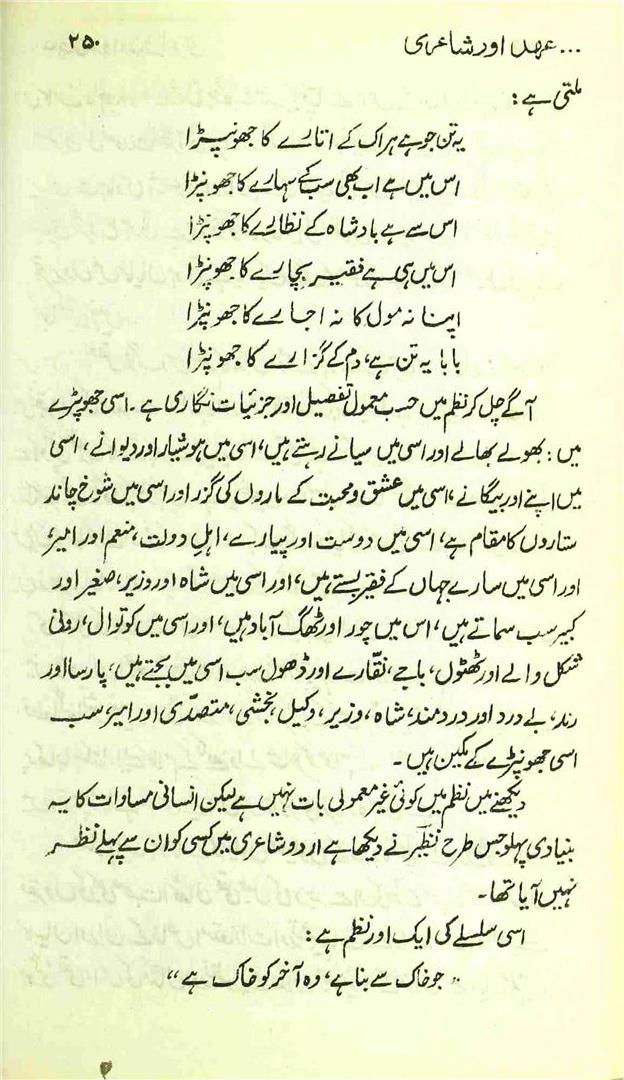 ... عہد اور شاعری ۲۵۰
ملتی ہے :
یہ تن جو ہے ہر اک کے اتارے کا جھونپڑا
اس میں ہے اب بھی سب کے سہارے کا جھونپڑا
اس سے ہے بادشاہ کے نظارے کا جھونپڑا
اس میں ہی ہے فقیر بچارے کا جھونپڑا
اپنا نہ مول کا نہ اجارے کا جھونپڑا
بابا یہ تن ہے، دم کے گزارے کا جھونپڑا
آگے چل کر نظم میں حسب معمول تفصیل اور جزئیات نگاری ہے۔ اسی جھوپڑے
میں : بھولے بھالے اور اسی میں سیانے رہتے ہیں، اسی میں ہوشیار اور دیوانے، اسی
میں اپنے اور بیگانے، اسی میں عشق و محبت کے ماروں کی گزر اور اسی میں شوخ چاند
ستاروں کا مقام ہے، اسی میں دوست اور پیارے، اہلِ دولت، منعم اور امیر،
اور اسی میں سارے جہاں کے فقیر بستے ہیں، اور اسی میں شاہ اور وزیر، صغیر اور
کبیر سب سماتے ہیں، اس میں چور اور ٹھگ آباد ہیں، اور اسی میں کوتوال، رونی
شکل والے اور ٹھٹوں، باجے، نقّارے اور ڈھول سب اسی میں بجتے ہیں، پارسا اور
رند، بے درد اور دردمند، شاہ، وزیر، وکیل، بخشی، متصدّی اور امیر سب
اسی جھونپڑے کے مکین ہیں۔
دیکھنے میں نظم میں کوئی غیر معمولی بات نہیں ہے لیکن انسانی مساوات کا یہ
بنیادی پہلو جس طرح نظیرؔ نے دیکھا ہے اردو شاعری میں کسی کو ان سے پہلے نظر
نہیں آیا تھا۔
اسی سلسلے کی ایک اور نظم ہے :
"جو خاک سے بنا ہے، وہ آخر کو خاک ہے"